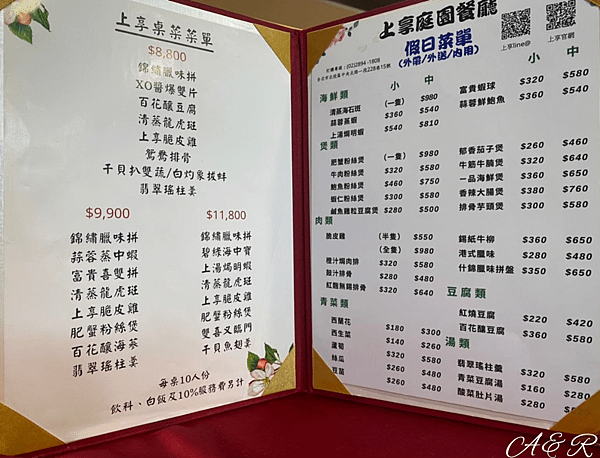 上享桌菜菜單
$8,800
錦繡臘味拼
XO醬爆雙片
百花釀豆腐
清蒸龍虎斑
上享脆皮雞
鴛鴦排骨
干貝扒雙蔬/白灼象拔蚌
翡翠瑤柱羹
$9,900
錦繡臘味拼
蒜蓉蒸中蝦
富貴喜雙拼
清蒸龍虎斑
上享脆皮雞
肥蟹粉絲煲
百花釀海蔘
翡翠瑤柱羹
$11,800
錦繡臘味拼
碧綠海中寶
上湯焗明蝦
清蒸龍虎斑
上享脆皮雞
肥蟹粉絲煲
雙喜又臨門
干貝魚翅羹
每桌10人份
飲料、白飯及10%服務費另計
上享庭園餐廳
假日菜單
(外帶/外送/內用)
訂購專線:(02)2894-1808
台北市北投區中央北路一段228巷15號
上享line@
上享官網
海鮮類 小 中
清蒸海石斑 (一隻) $980
蒜蓉蒸蝦 $360 $540
上湯焗明蝦 $540 $810
煲類
肥蟹粉絲煲 (一隻) $980
牛肉粉絲煲 $320 $580
鮑魚粉絲煲 $460 $750
蝦仁粉絲煲 $300 $580
鹹魚雞粒豆腐煲 $280 $500
肉類
脆皮雞 (半隻) $550
(全隻) $980
橙汁焗肉排 $320 $580
豉汁排骨 $280 $480
紅麴無錫排骨 $320 $640
青菜類
西蘭花 $180 $300
西生菜 $140 $260
蘆筍 $280 $480
絲瓜 $320 $580
豆苗 $260 $480
小 中
富貴蝦球 $320 $580
蒜蓉鮮鮑魚 $360 $540
郁香茄子煲 $260 $460
牛筋牛腩煲 $320 $640
一品海鮮煲 $360 $650
香辣大腸煲 $380 $760
排骨芋頭煲 $300 $580
錫紙牛柳 $360 $650
港式臘味 $280 $480
什錦臘味拼盤 $350 $650
豆腐類
紅燒豆腐 $220 $420
百花釀豆腐 $360 $580
湯類
翡翠瑤柱羹 $320 $580
青菜豆腐湯 $160 $280
酸菜肚片湯 $280 $500
A & R